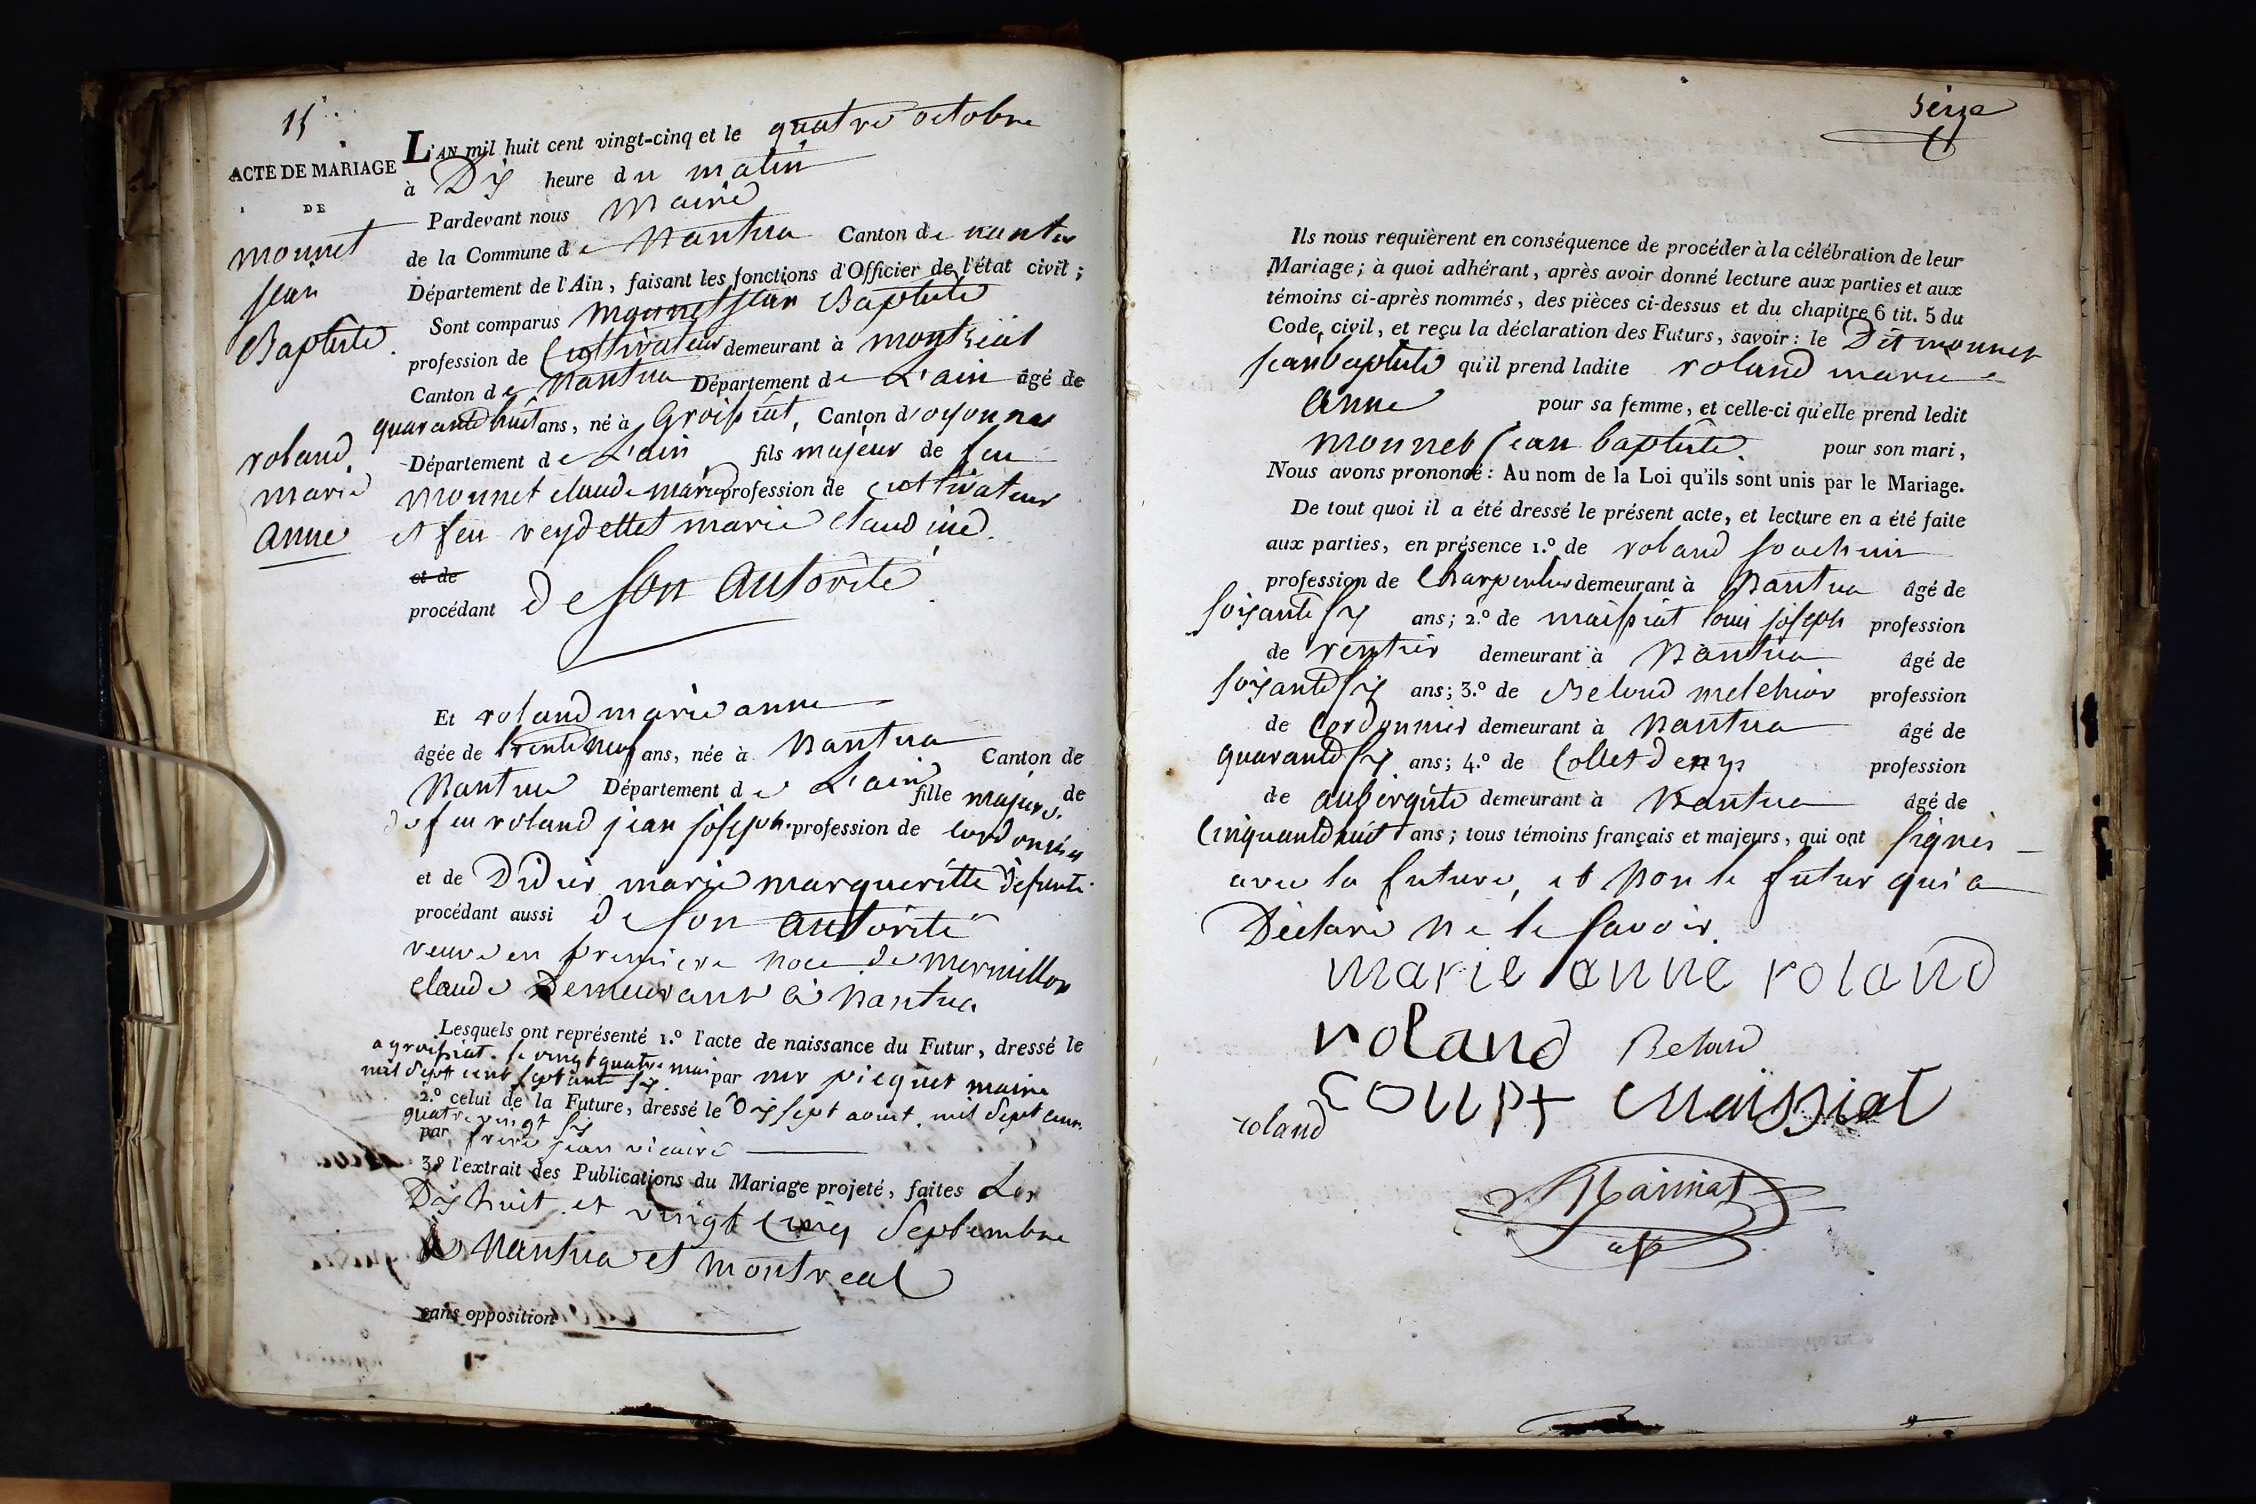 15
ACTE DE MARIAGE
DE
monnet
jean
Baptiste.
roland
marie
anne
L'AN mil huit cent vingt-cinq et le quatre octobre
à Dix heure du matin
Pardevant nous Maire
de la Commune de Nantua Canton de nantua
Département de l'Ain, faisant les fonctions d'Officier de l'état civil ;
Sont comparus monnet jean Baptiste
profession de Cultivateur demeurant à montréal
Canton de Nantua Département de L'ain âgé de
quarante huit ans, né à Groissiat, Canton d'oyonnas
Département de L'ain fils majeur de feu
monnet claude marie profession de cultivateur
et feu reydellet marie claudine.
et de
procédant de son autorité
Et roland marie anne
âgée de trente neuf ans, née à Nantua Canton de
Nantua Département de L'ain fille majeure de
de feu roland jean joseph profession de cordonnier
et de Didier marie margueritte défunte.
procédant aussi de son autorité
veuve en premiere noce de mermillon
claude Demeurant à Nantua
Lesquels ont représenté 1.º l'acte de naissance du Futur, dressé le
a groissiat. le vingt quatre mai
mil sept cent septante six par mr picquet maire
2.º celui de la Future, dressé le Dix sept aout mil sept cent
quatre vingt six
par frere jean vicaire
3º l'extrait des Publications du Mariage projeté, faites Les
Dix huit et vingt cinq Septembre
à Nantua et montreal
sans opposition
seize
Ils nous requièrent en conséquence de procéder à la célébration de leur
Mariage; à quoi adhérant, après avoir donné lecture aux parties et aux
témoins ci-après nommés, des pièces ci-dessus et du chapitre 6 tit. 5 du
Code civil, et reçu la déclaration des Futurs, savoir : le Dit monnet
jean baptiste qu'il prend ladite roland marie
anne pour sa femme, et celle-ci qu'elle prend ledit
monnet jean baptiste. pour son mari,
Nous avons prononcé : Au nom de la Loi qu'ils sont unis par le Mariage.
De tout quoi il a été dressé le présent acte, et lecture en a été faite
aux parties, en présence 1.º de roland joachim
profession de Charpentier demeurant à Nantua âgé de
soixante six ans; 2.º de maissiat louis joseph profession
de rentier demeurant à Nantua âgé de
soixante six ans; 3.º de Beloud melchior profession
de Cordonnier demeurant à Nantua âgé de
quarante six ans; 4.º de Collet denys profession
de aubergiste demeurant à Nantua âgé de
Cinquante huit ans; tous témoins français et majeurs, qui ont signés
avec la future, et non le futur qui a
Déclaré ne le savoir.
marie anne roland
roland Beloud
maissiat
roland